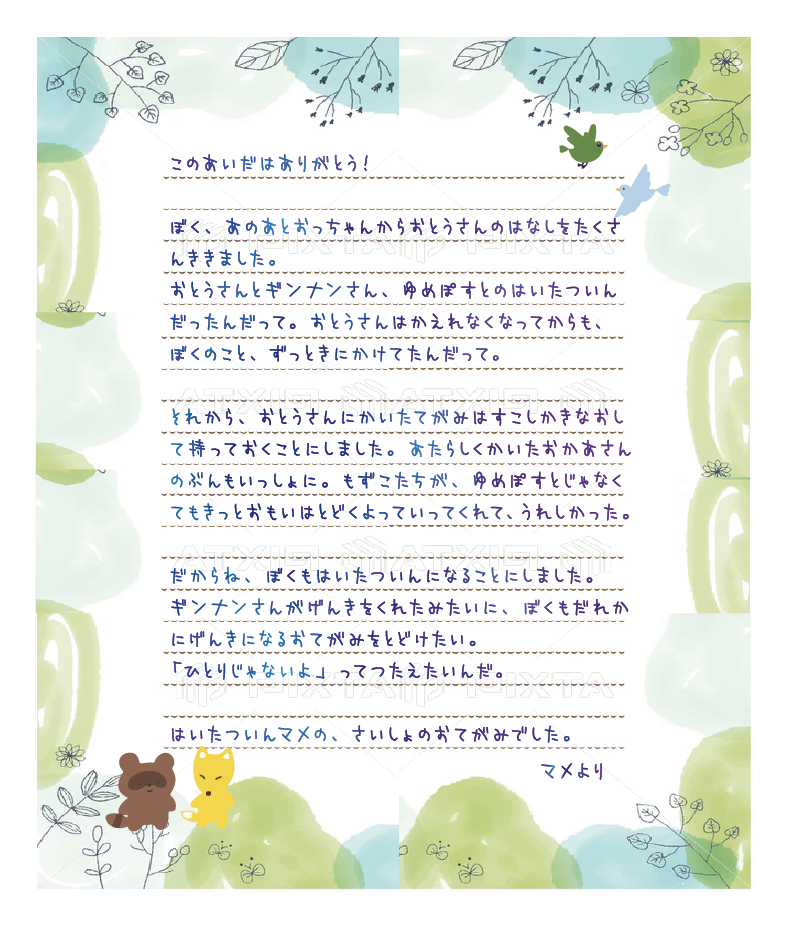 このあいだはありがとう!
ぼく、あのあとおっちゃんからおとうさんのはなしをたくさ
んききました。
おとうさんとギンナンさん、ゆめぽすとのはいたついん
だったんだって。おとうさんはかえれなくなってからも、
ぼくのこと、ずっときにかけてたんだって。
それから、おとうさんにかいたてがみはすこしかきなおし
て持っておくことにしました。あたらしくかいたおかあさん
のぶんもいっしょに。もずこたちが、ゆめぽすとじゃなく
てもきっとおもいはとどくよっていってくれて、うれしかった。
だからね、ぼくもはいたついんになることにしました。
ギンナンさんがげんきをくれたみたいに、ぼくもだれか
にげんきになるおてがみをとどけたい。
「ひとりじゃないよ」ってつたえたいんだ。
はいたついんマメの、さいしょのおてがみでした。
マメより
PIXTA
PIXTA
PIXTA
PIXTA
PIXTA
PIXTA
PIXTA
PIXTA